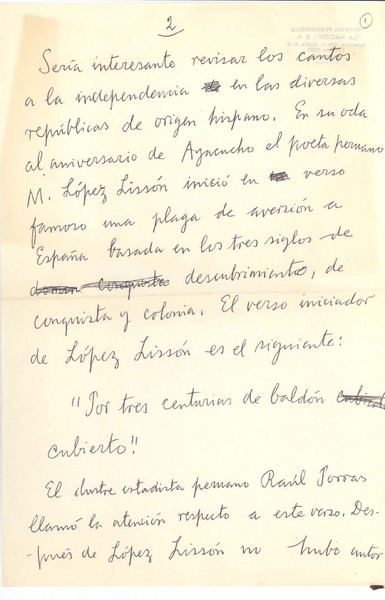 2
1
Sería interesante revisar los cantos
a la independencia en las diversas
repúblicas de origen hispano. En su oda
al aniversario de Ayacucho el poeta peruano
M. López Lissón inició en verso
famoso una plaga de aversión a
España basada en los tres siglos de
conquista descubrimiento, de
conquista y colonia. El verso iniciador
de López Lissón es el siguiente:
"Por tres centurias de baldón
cubierto!"
El ilustre estadista peruano Raúl Porras
llamó la atención respecto a este verso. Des-
-pués de López Lissón no hubo autor